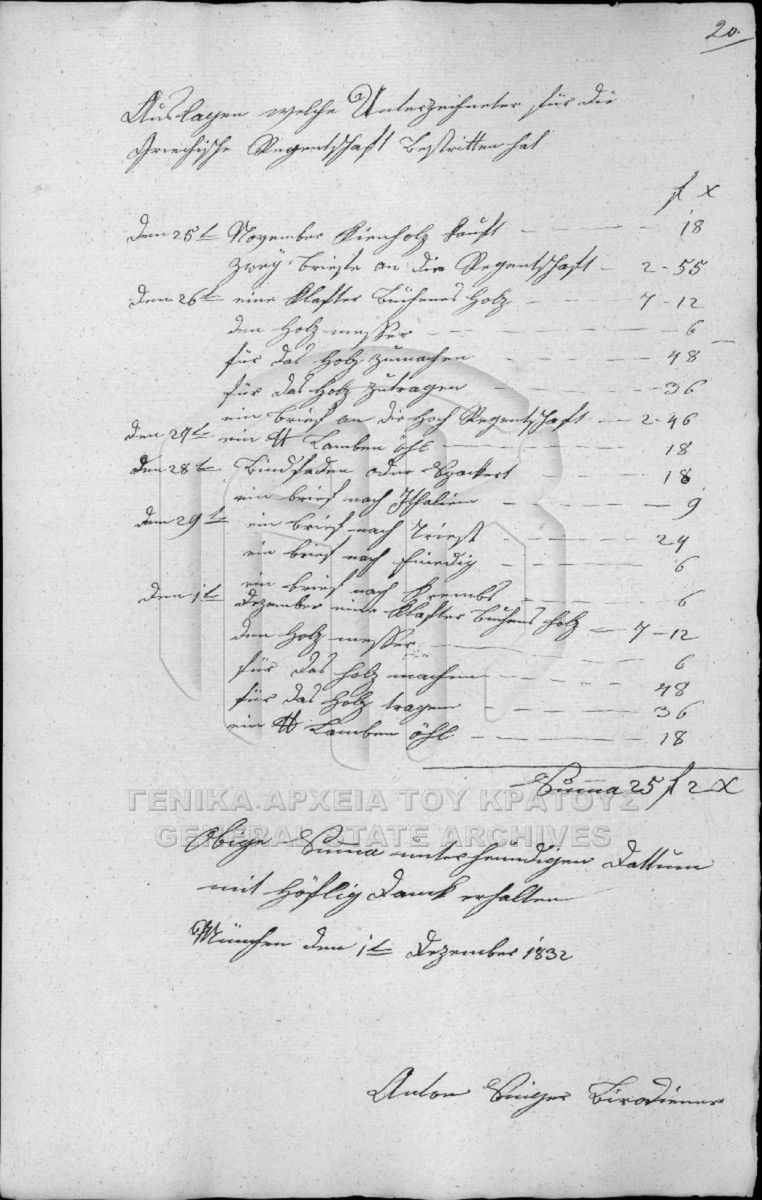 20.
Auslagen welche Unterzeichneter für die
Griechische Regentschaft bestritten hat
f x
den 25t November Kienholz kauft — — — — 18
zwey briefe an die Regentschaft — 2 - 55
den 26t eine Klafter büchenes Holz — — 7 - 12
den Holzmesser — — — — 6
für das Holz zumachen — — — — 48
für das Holz zutragen — — — — 36
ein brief an die Hoch Regentschaft — — 2 - 46
den 27t ein ℔ Lamben öhl — — — — 18
den 28t Bindfaden oder Spackert — — — 18
ein brief nach Ithalien — — — — 9
den 29t ein brief nach Triest — — — — 24
ein brief nach Finedig — — — — 6
ein brief nach Krembs — — — — 6
den 1t Dezember eine Klafter buchens Holz — 7 - 12
den Holzmesser — — — — 6
für das Holz machen — — — — 48
für das Holz tragen — — — — 36
ein ℔ Lamben öhl — — — — 18
Summa 25 f 2 x
ΓΕΝΙΚΑ ΑΡΧΕΙΑ ΤΟΥ ΚΡΑΤΟΥΣ
GENERAL STATE ARCHIVES
Obige Suma unter heindigen Dattum
mit höflig Danck erhalten
München den 1t Dezember 1832
Anton Birodiener